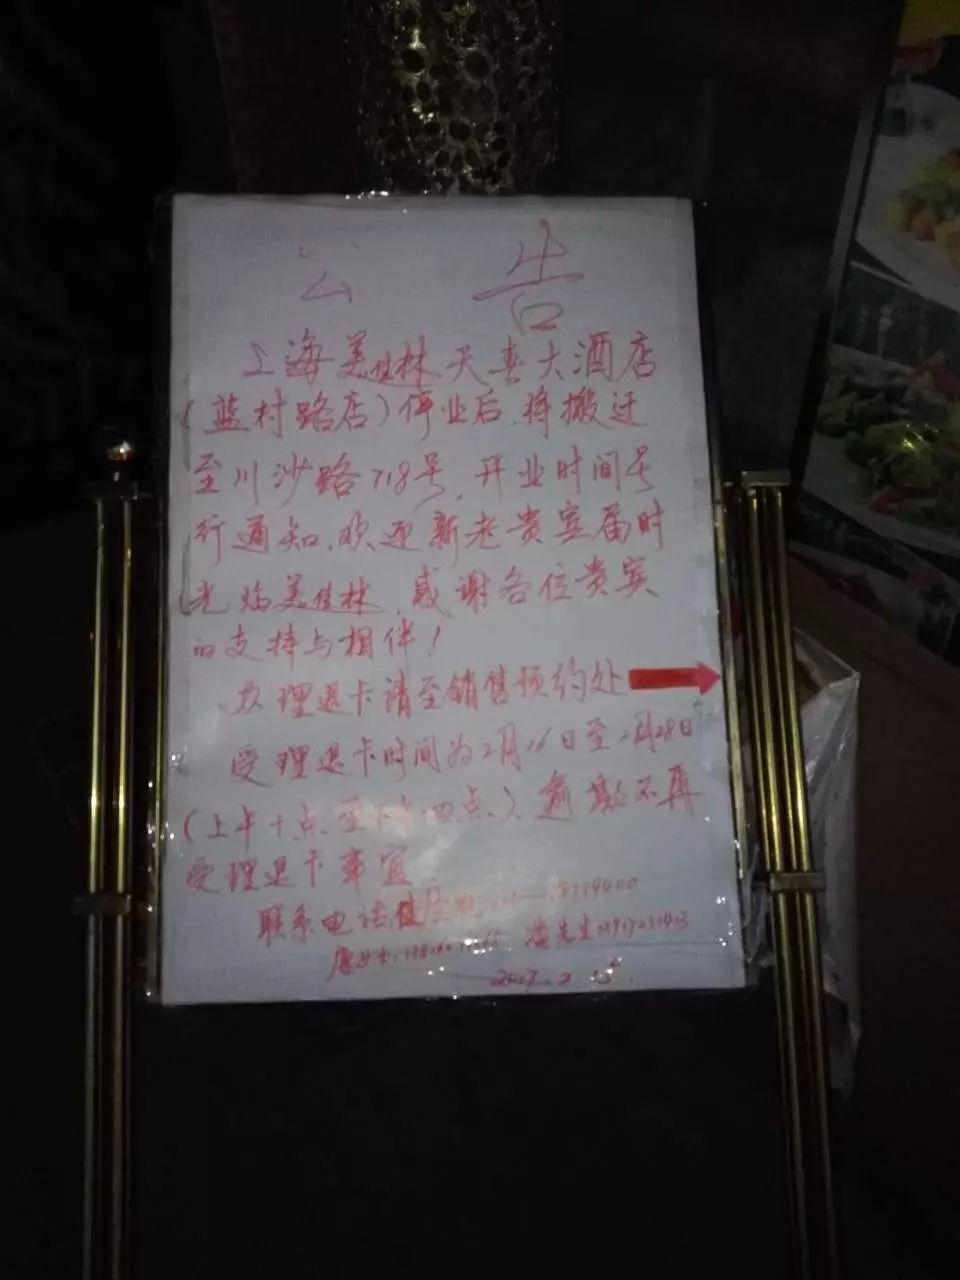 公 告
上海美佳林天喜大酒店
(蓝村路店)停业后,将搬迁
至川沙路718号,开业时间另
行通知,欢迎新老贵宾届时
光临美佳林,感谢各位贵宾
的支持与相伴!
办理退卡请至销售预约处
受理退卡时间为2月16日至2月28日
(上午十点至下午四点),逾期不再
受理退卡事宜
联系电话
唐女士 潘先生
2017.2.15